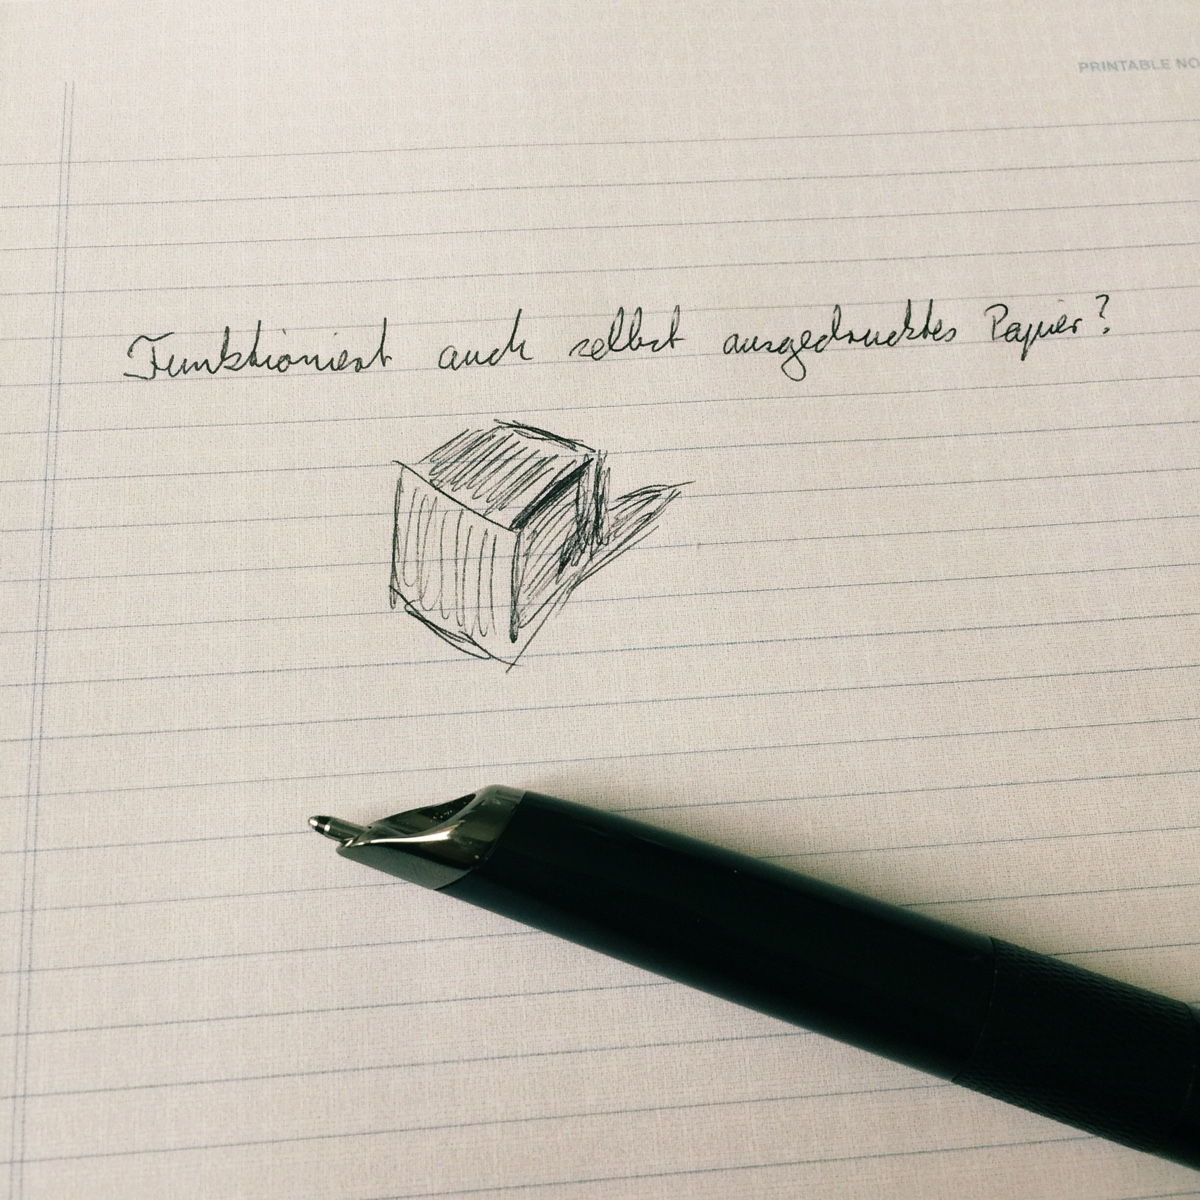 PRINTABLE NO
Funktioniert auch selbst ausgedrucktes Papier?